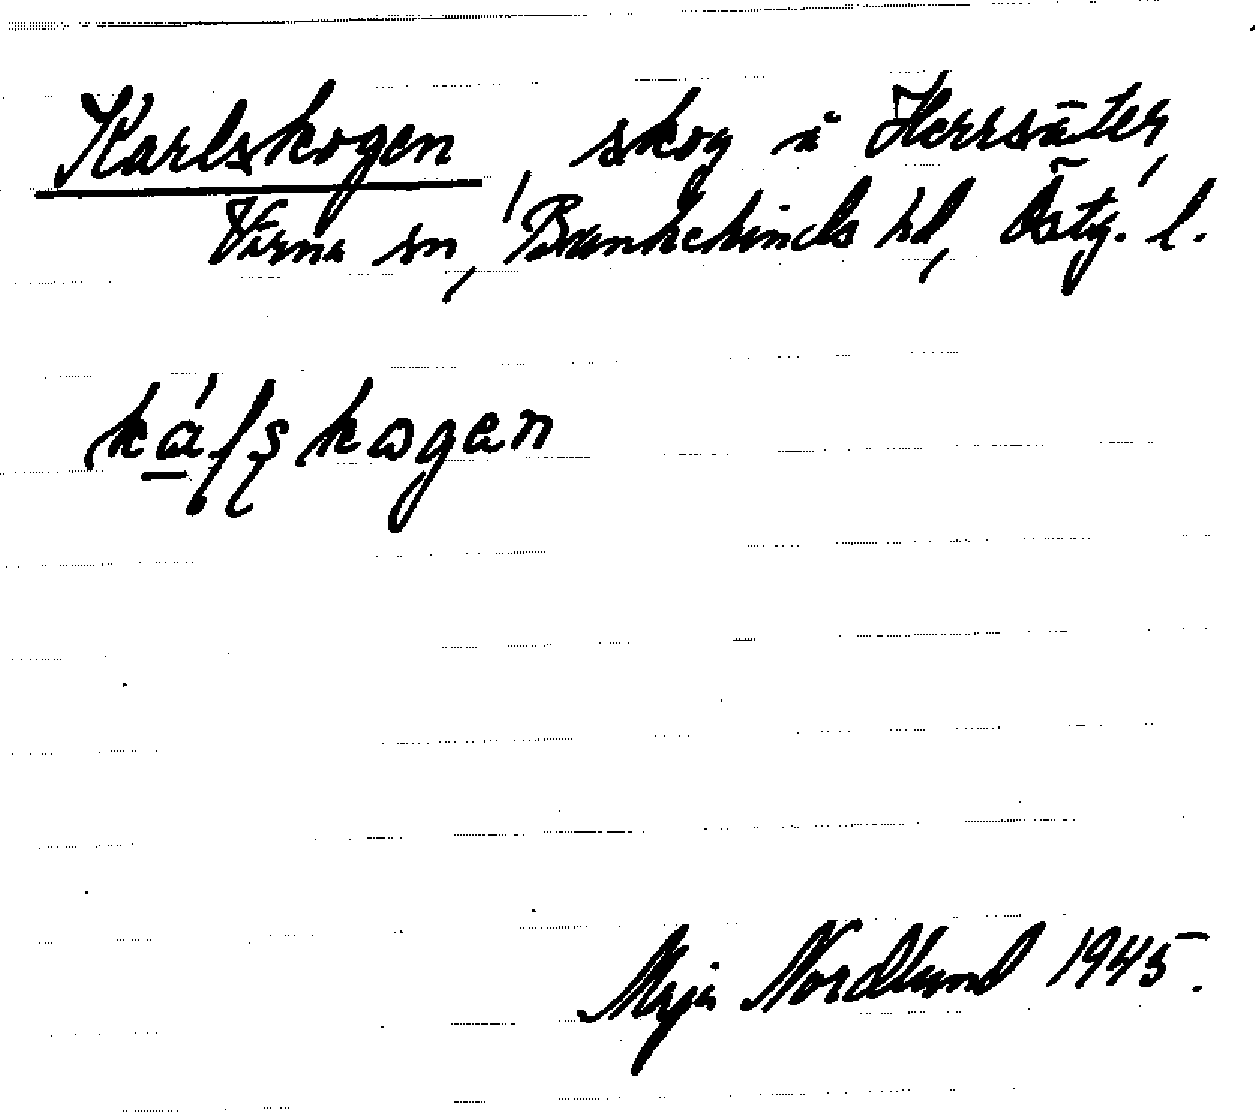 Karlskogen, skog i Herrsäter,
Värna sn, Bankekinds hd, Östg. l.
káꞎskogen
Maja Nordlund 1945.